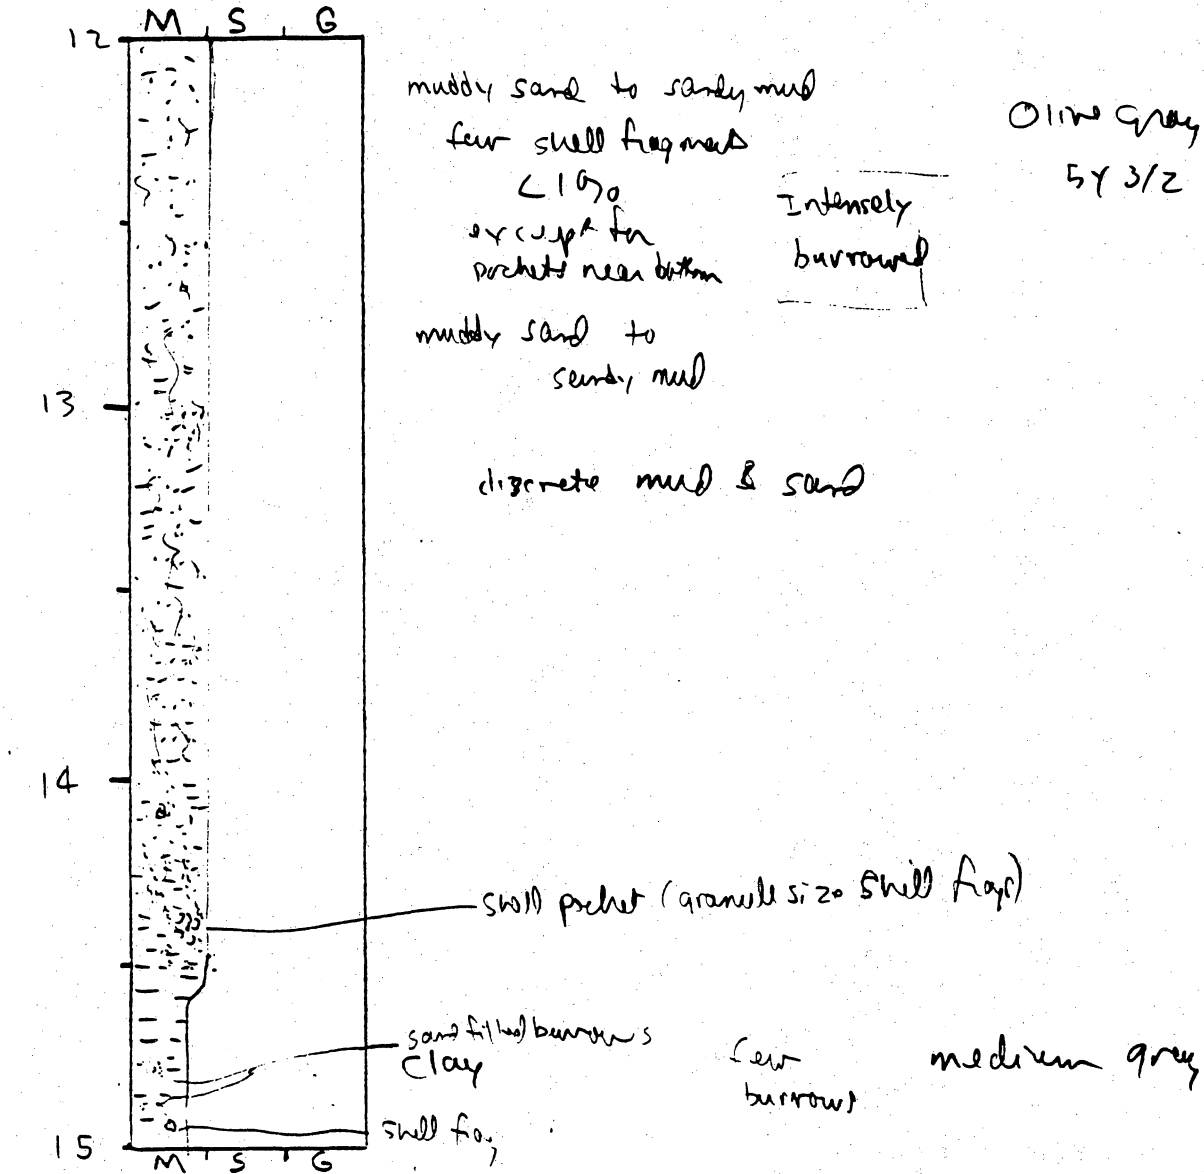 M S G
12
muddy sand to sandy mud
few shell fragments
<1%
except for
pockets near bottom
Intensely
burrowed
Olive gray
5Y 3/2
muddy sand to
sandy mud
13
discrete mud & sand
14
shell pocket (granule size shell frags)
sand filled burrows
clay
few
burrows
medium gray
shell frag
15
M S G